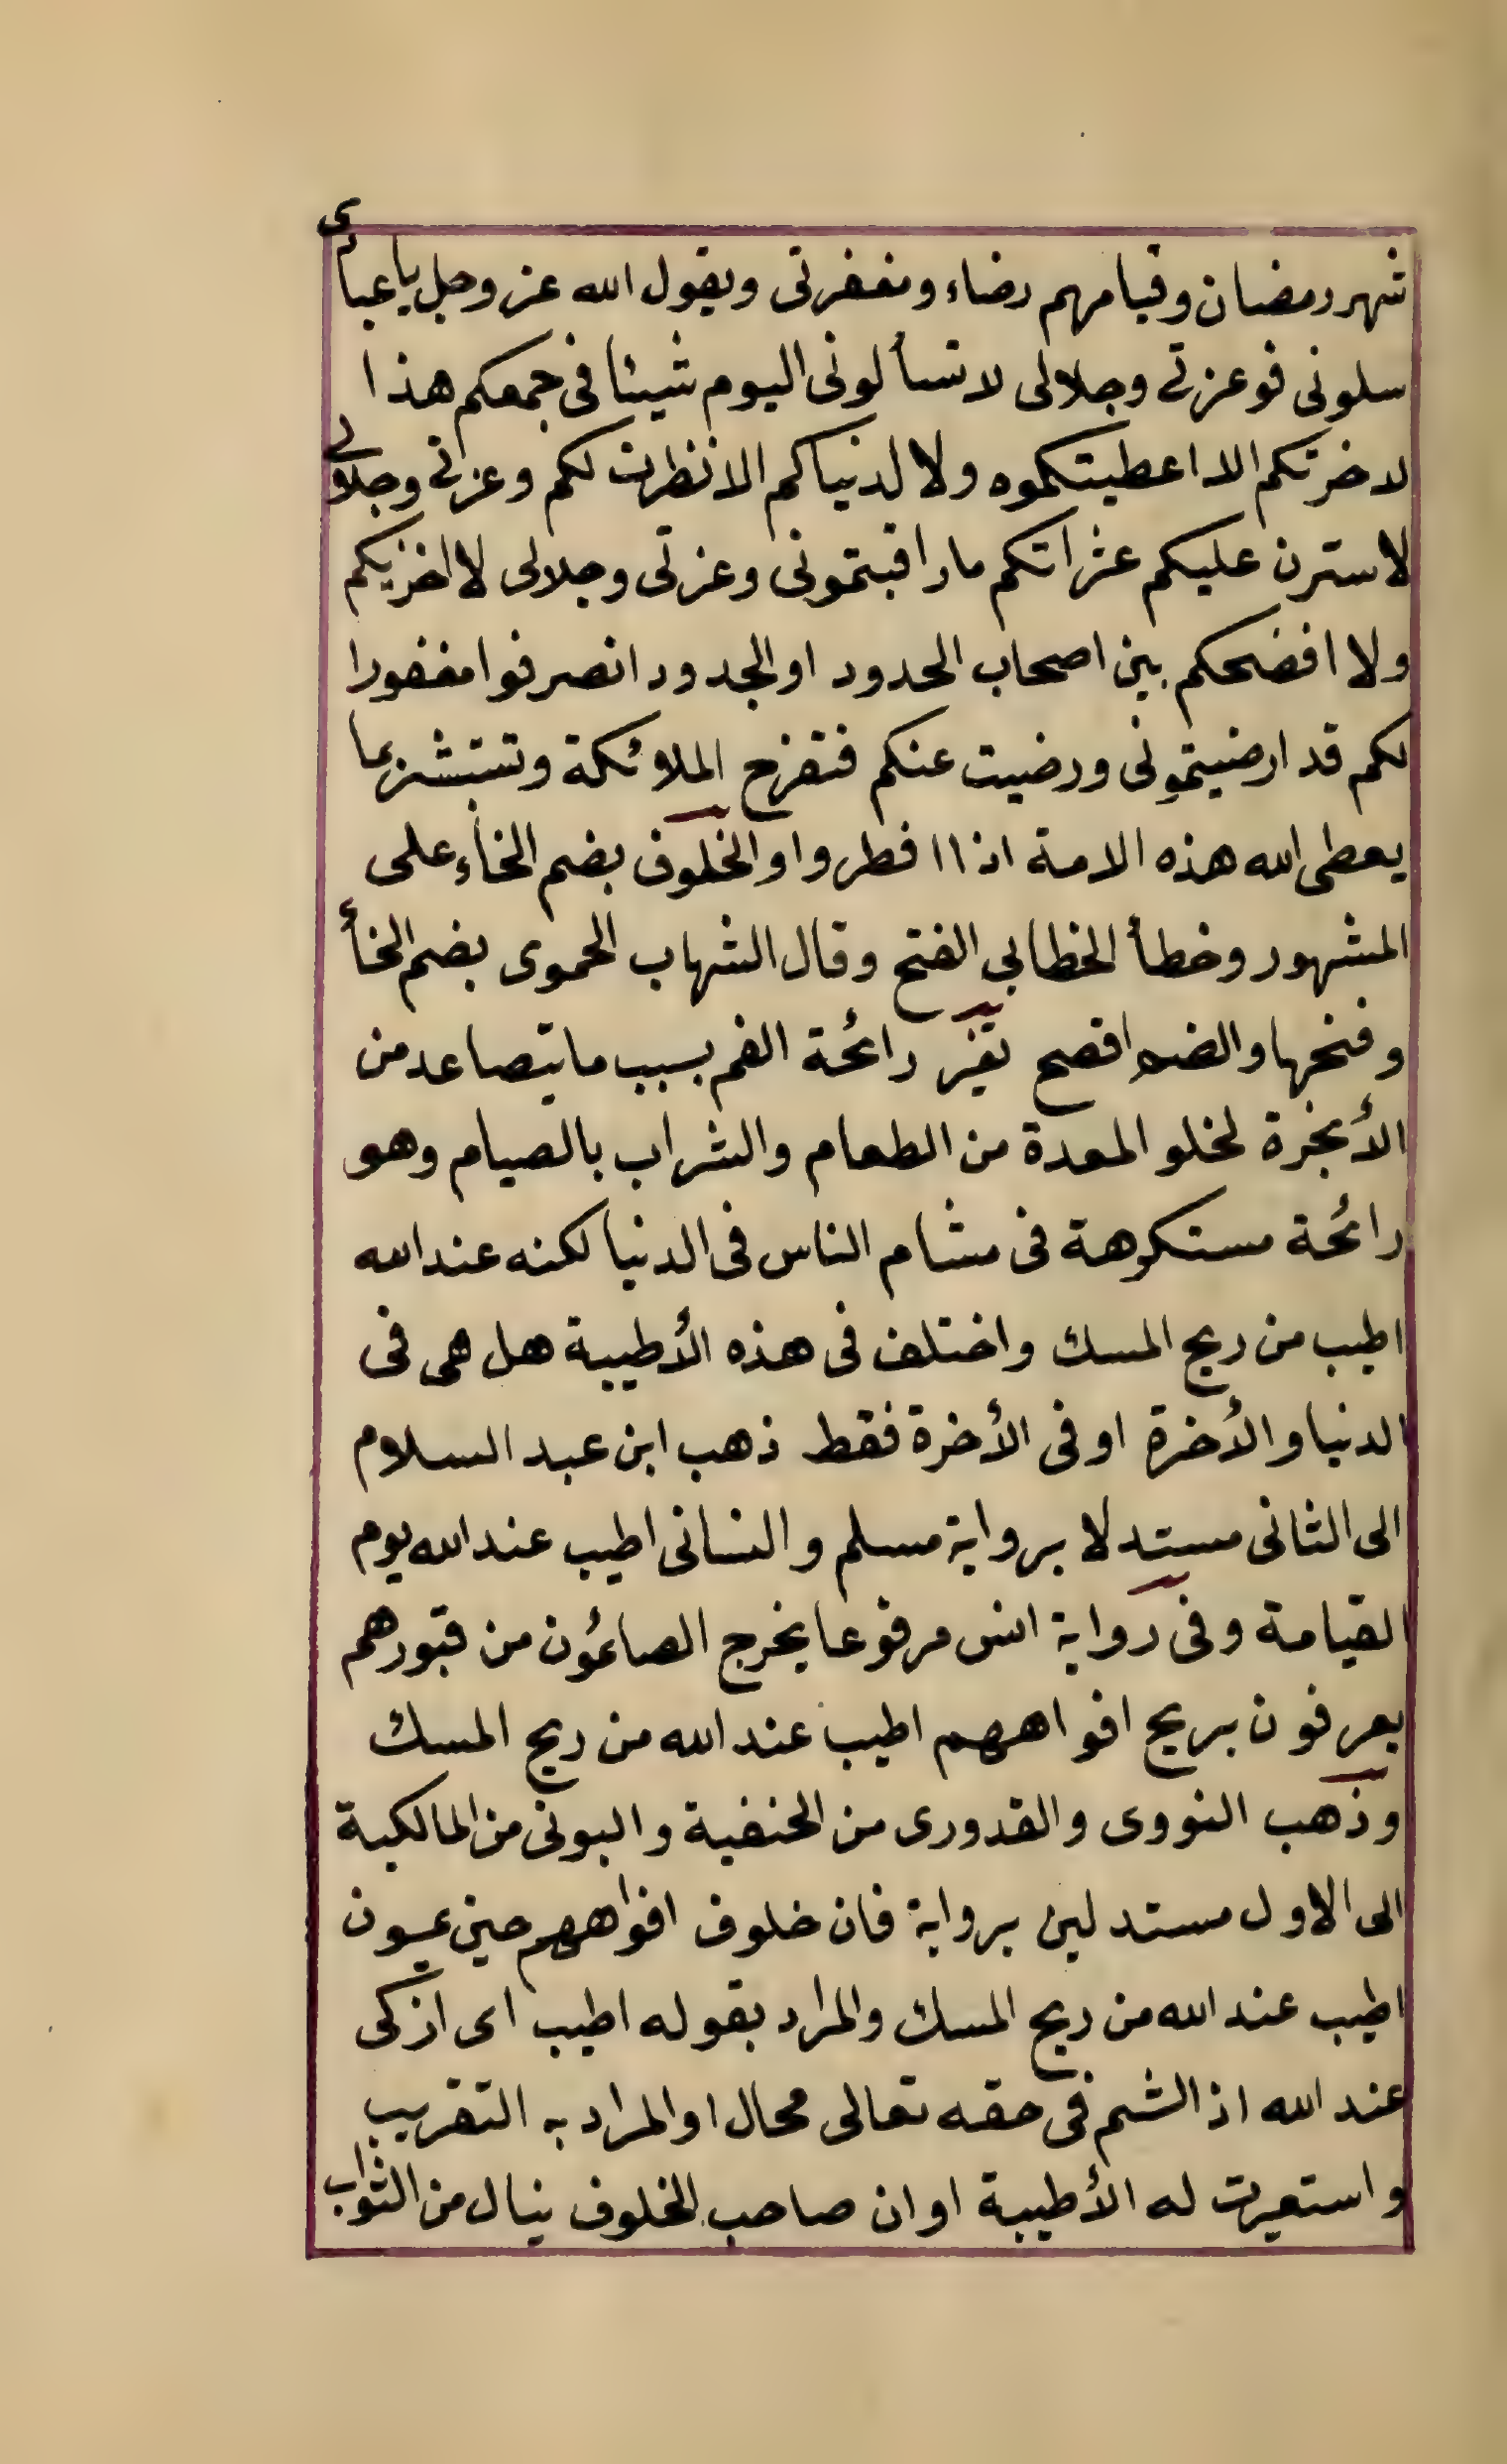 شهر رمضان وقيامهم رضاء ومغفرتى ويقول الله عز وجل يا عبادى
سلونى فوعزتى وجلالى لا تسألونى اليوم شيئا فى جمعكم هذا
لاخرتكم الا اعطيتكموه ولا لدنياكم الا نظرت لكم وعزتى وجلالى
لاسترن عليكم عثراتكم ما راقبتمونى وعزتى وجلالى لا اخزيكم
ولا افضحكم بين اصحاب الحدود او الجدود انصرفوا مغفورا
لكم قد ارضيتمونى ورضيت عنكم فتفرح الملائكة وتستبشر بما
يعطى الله هذه الامة اذا افطروا والخلوف بضم الخاء على
المشهور وخطأ الخطابي الفتح وقال الشهاب الحموى بضم الخأء
وفتحها والضم افصح تغير رائحة الفم بسبب ما يتصاعد من
الأبخرة لخلو المعدة من الطعام والشراب بالصيام وهو
رائحة مستكرهة فى مشام الناس فى الدنيا لكنه عند الله
اطيب من ريح المسك واختلف فى هذه الأطيبية هل هى فى
الدنيا والأخرة او فى الأخرة فقط ذهب ابن عبد السلام
الى الثانى مستدلا برواية مسلم والنسائى اطيب عند الله يوم
القيامة وفى رواية انس مرفوعا يخرج الصائمون من قبورهم
يعرفون بريح افواههم اطيب عند الله من ريح المسك
وذهب النووى والقدورى من الحنفية والبونى من المالكية
الى الاول مستدلين برواية فان خلوف افواههم حين يمسون
اطيب عند الله من ريح المسك والمراد بقوله اطيب اى ازكى
عند الله اذ الشم فى حقه تعالى محال او المراد به التقريب
واستعيرت له الأطيبية او ان صاحب الخلوف ينال من الثواب